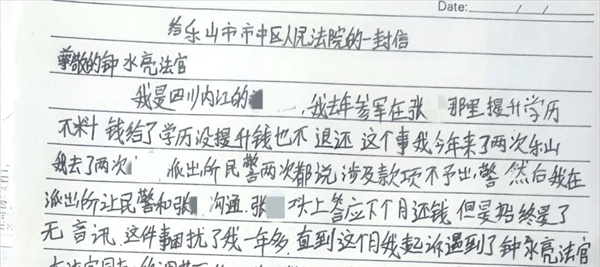 Date:
给乐山市市中区人民法院的一封信
尊敬的钟永亮法官
我是四川内江的 ,我去年参军在张 那里提升学历
不料 钱给了学历没提升钱也不退还 这个事我今年来了两次乐山
我去了两次 派出所民警两次都说涉及款项不予出警 然后我在
派出所让民警和张 沟通.张 口头上答应下个月还钱.但是始终是了
无音讯.这件事困扰了我一年多 直到这个月我起诉遇到了钟永亮法官